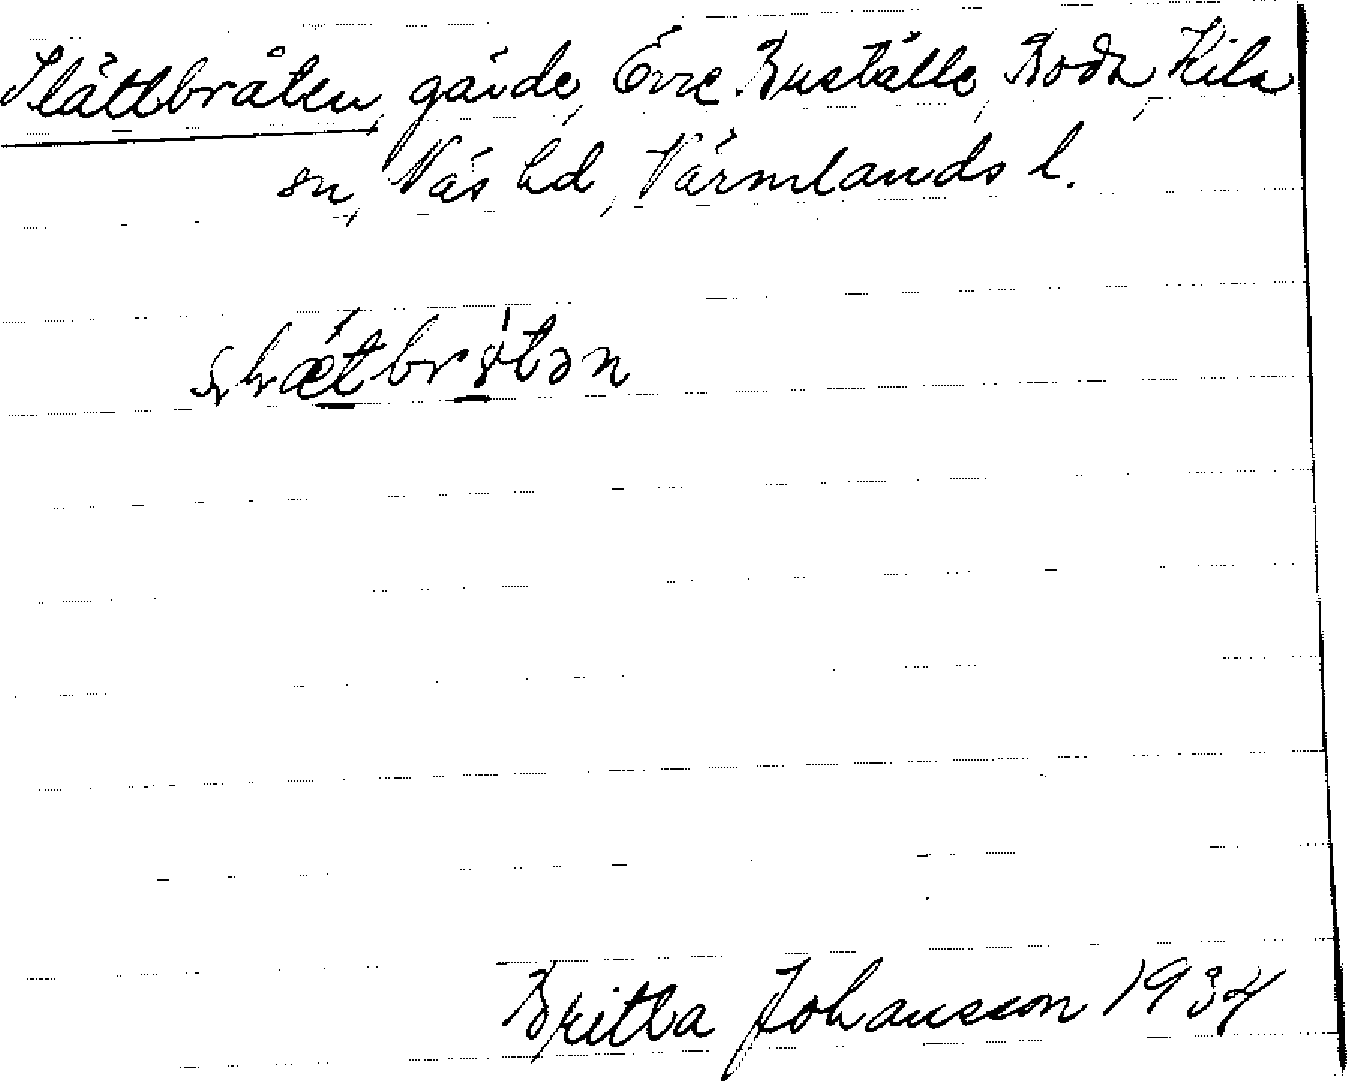 Slättbråten, gärde, Övre Buställe, Boda, Kila
sn, Näs hd, Värmlands l.
Britta Johansson 1934